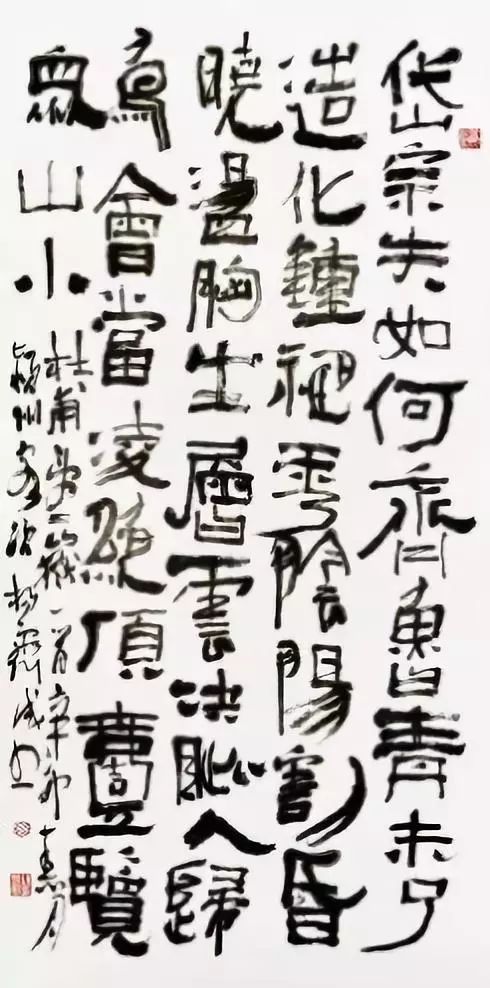 岱宗夫如何齊魯青未了
造化鍾神秀陰陽割昏
曉盪胸生層雲決眦入歸
鳥會當凌絕頂壹覽
眾山小
杜甫望嶽一首辛卯